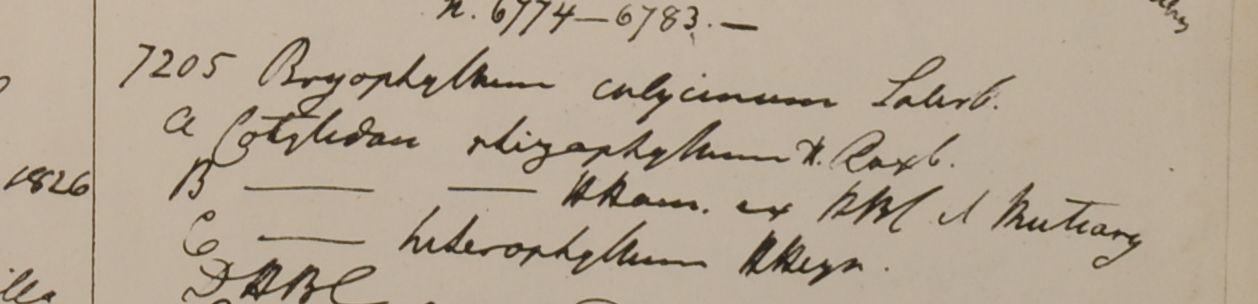 n. 6774—6783.—
7205 Bryophyllum calycinum Salisb.
a Cotyledon rhizophyllum H. Roxb.
B — — HHam. ex HBC et Mutiary
C — heterophyllum HHeyn.
1826
D HBC
illa